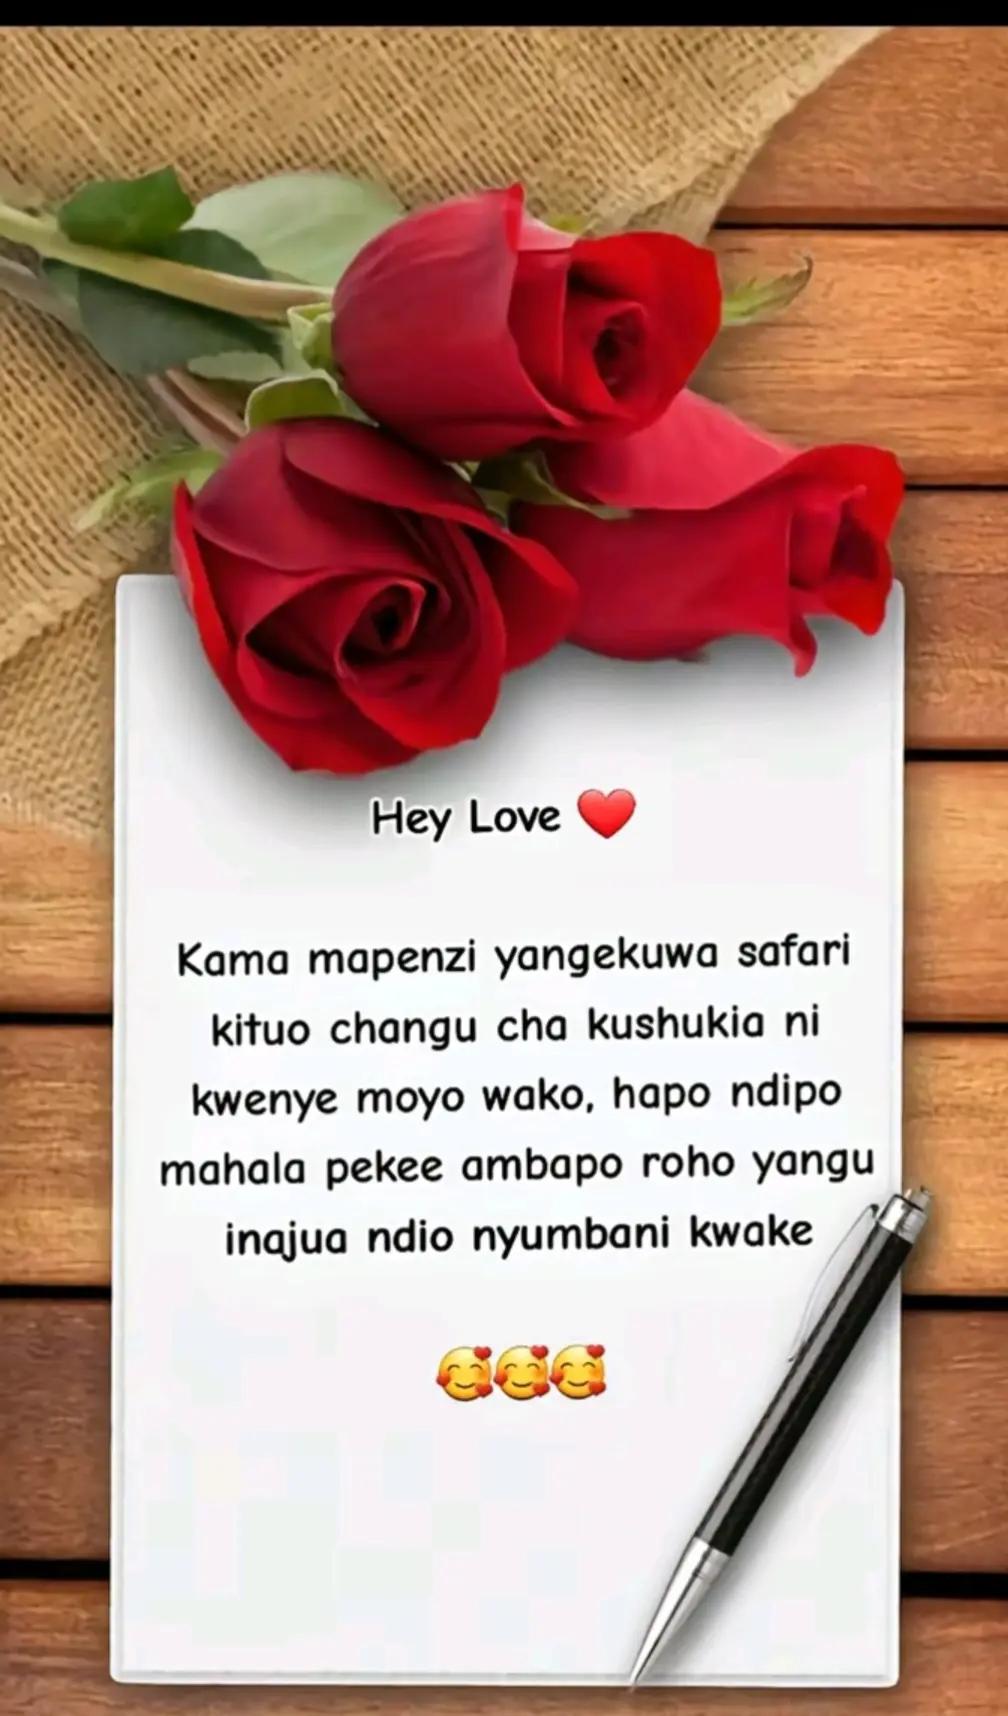 Hey Love ❤️
Kama mapenzi yangekuwa safari
kituo changu cha kushukia ni
kwenye moyo wako, hapo ndipo
mahala pekee ambapo roho yangu
inajua ndio nyumbani kwake
🥰🥰🥰